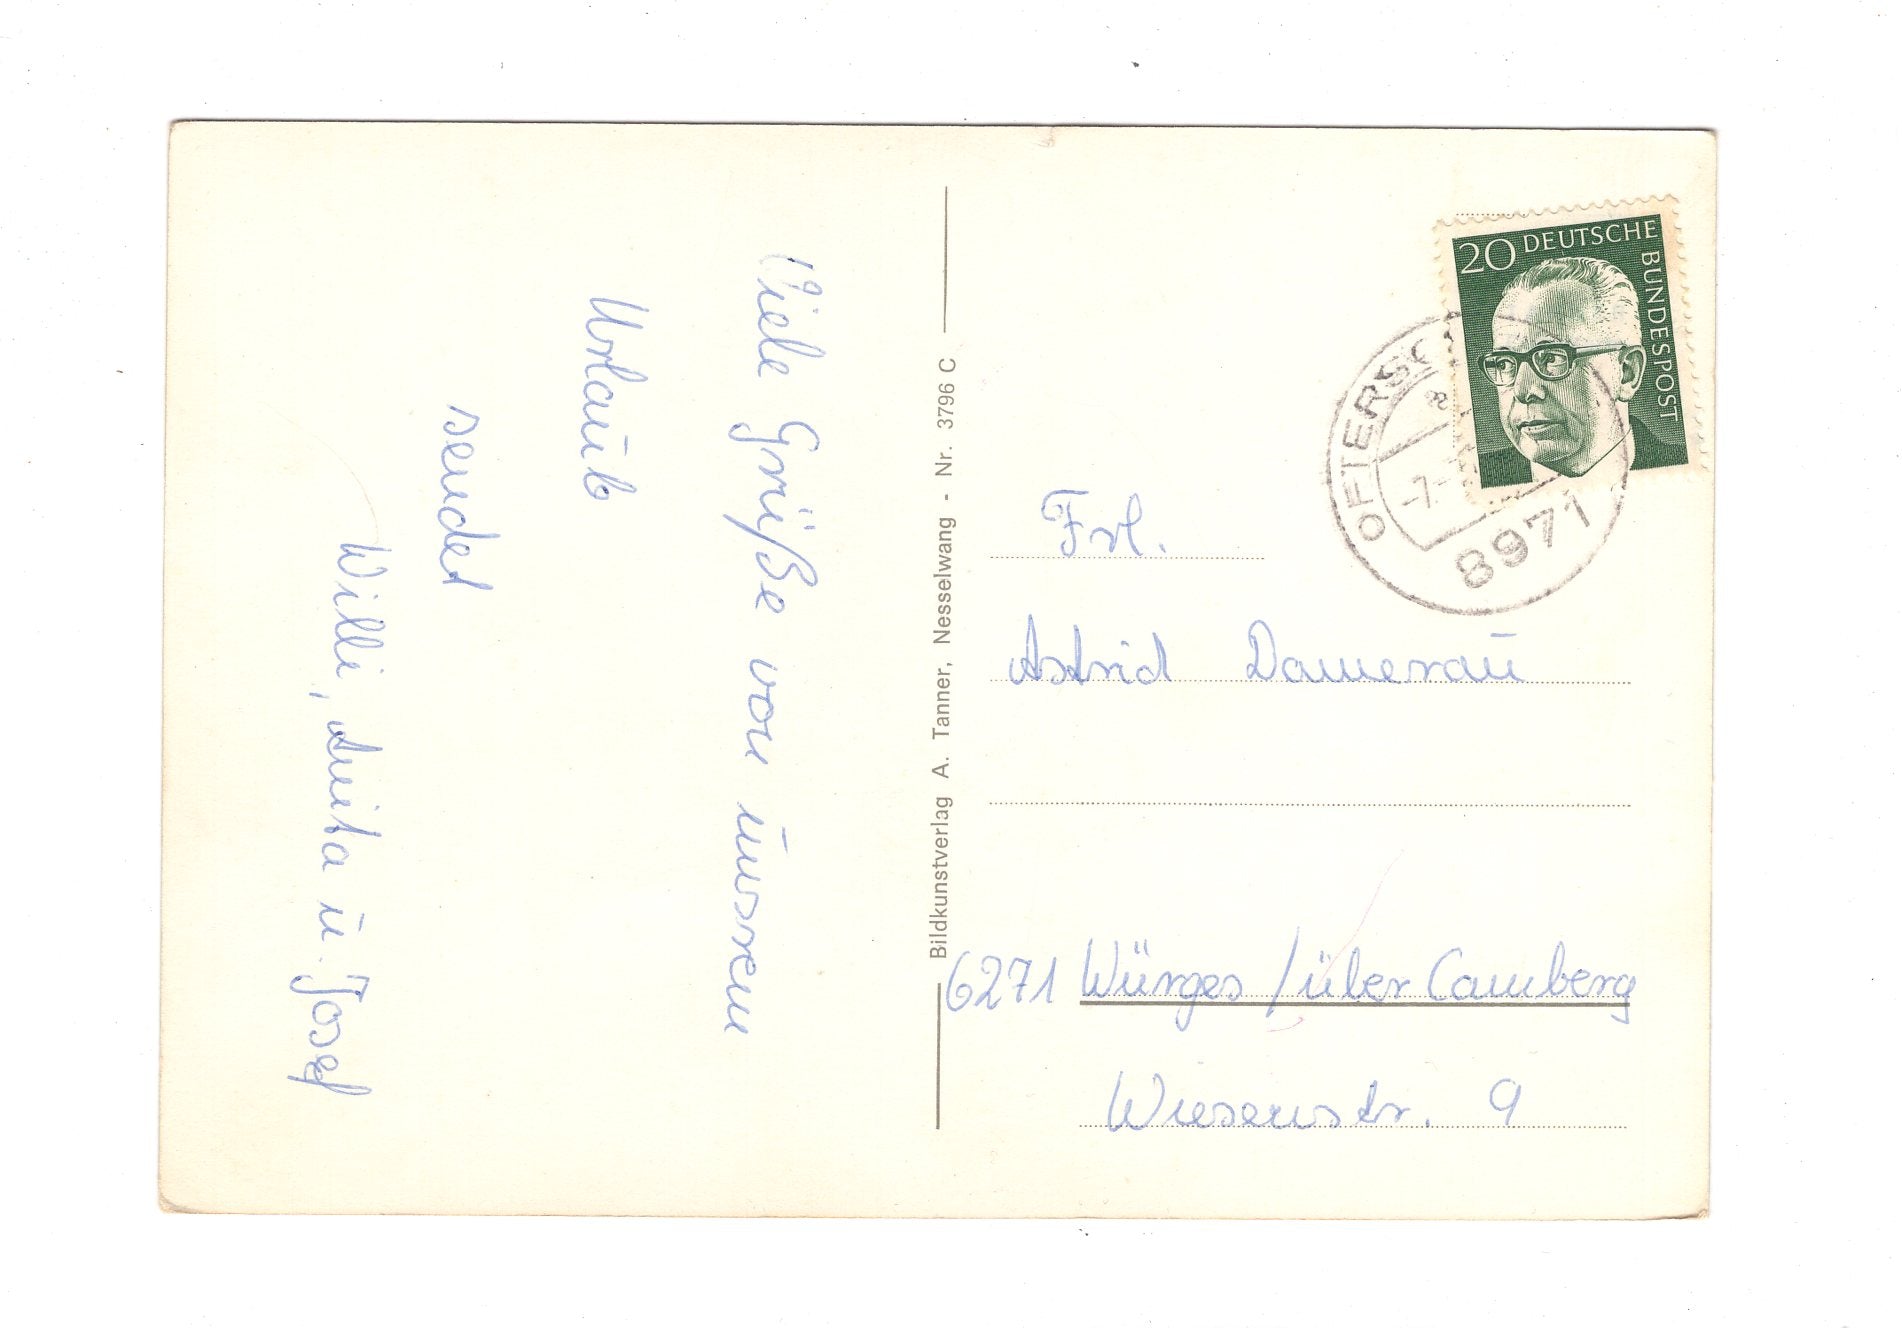 Viele Grüße von unsrem
Urlaub
sendet
Willi, Anita u. Josef
Bildkunstverlag A. Tanner, Nesselwang - Nr. 3796 C
20 DEUTSCHE BUNDESPOST
OFTERSC
a
-7.-
8971
Frl.
Astrid Damerau
6271 Würges / über Camberg
Wiesenstr. 9